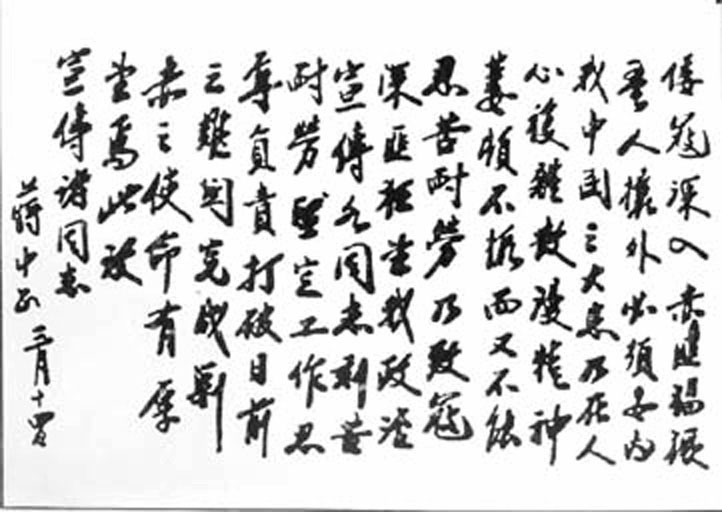 倭寇深入赤匪猖獗
吾人攘外必須安內
我中國之大患乃在人
心複雜散漫精神
萎頓不振而又不能
忍苦耐勞乃致寇
深匪猖望我政治
宣傳各同志刻苦
耐勞堅定工作忍
辱負責打破目前
之難關完成剿
赤之使命有厚
望焉此致
宣傳諸同志
蔣中正 三月十四